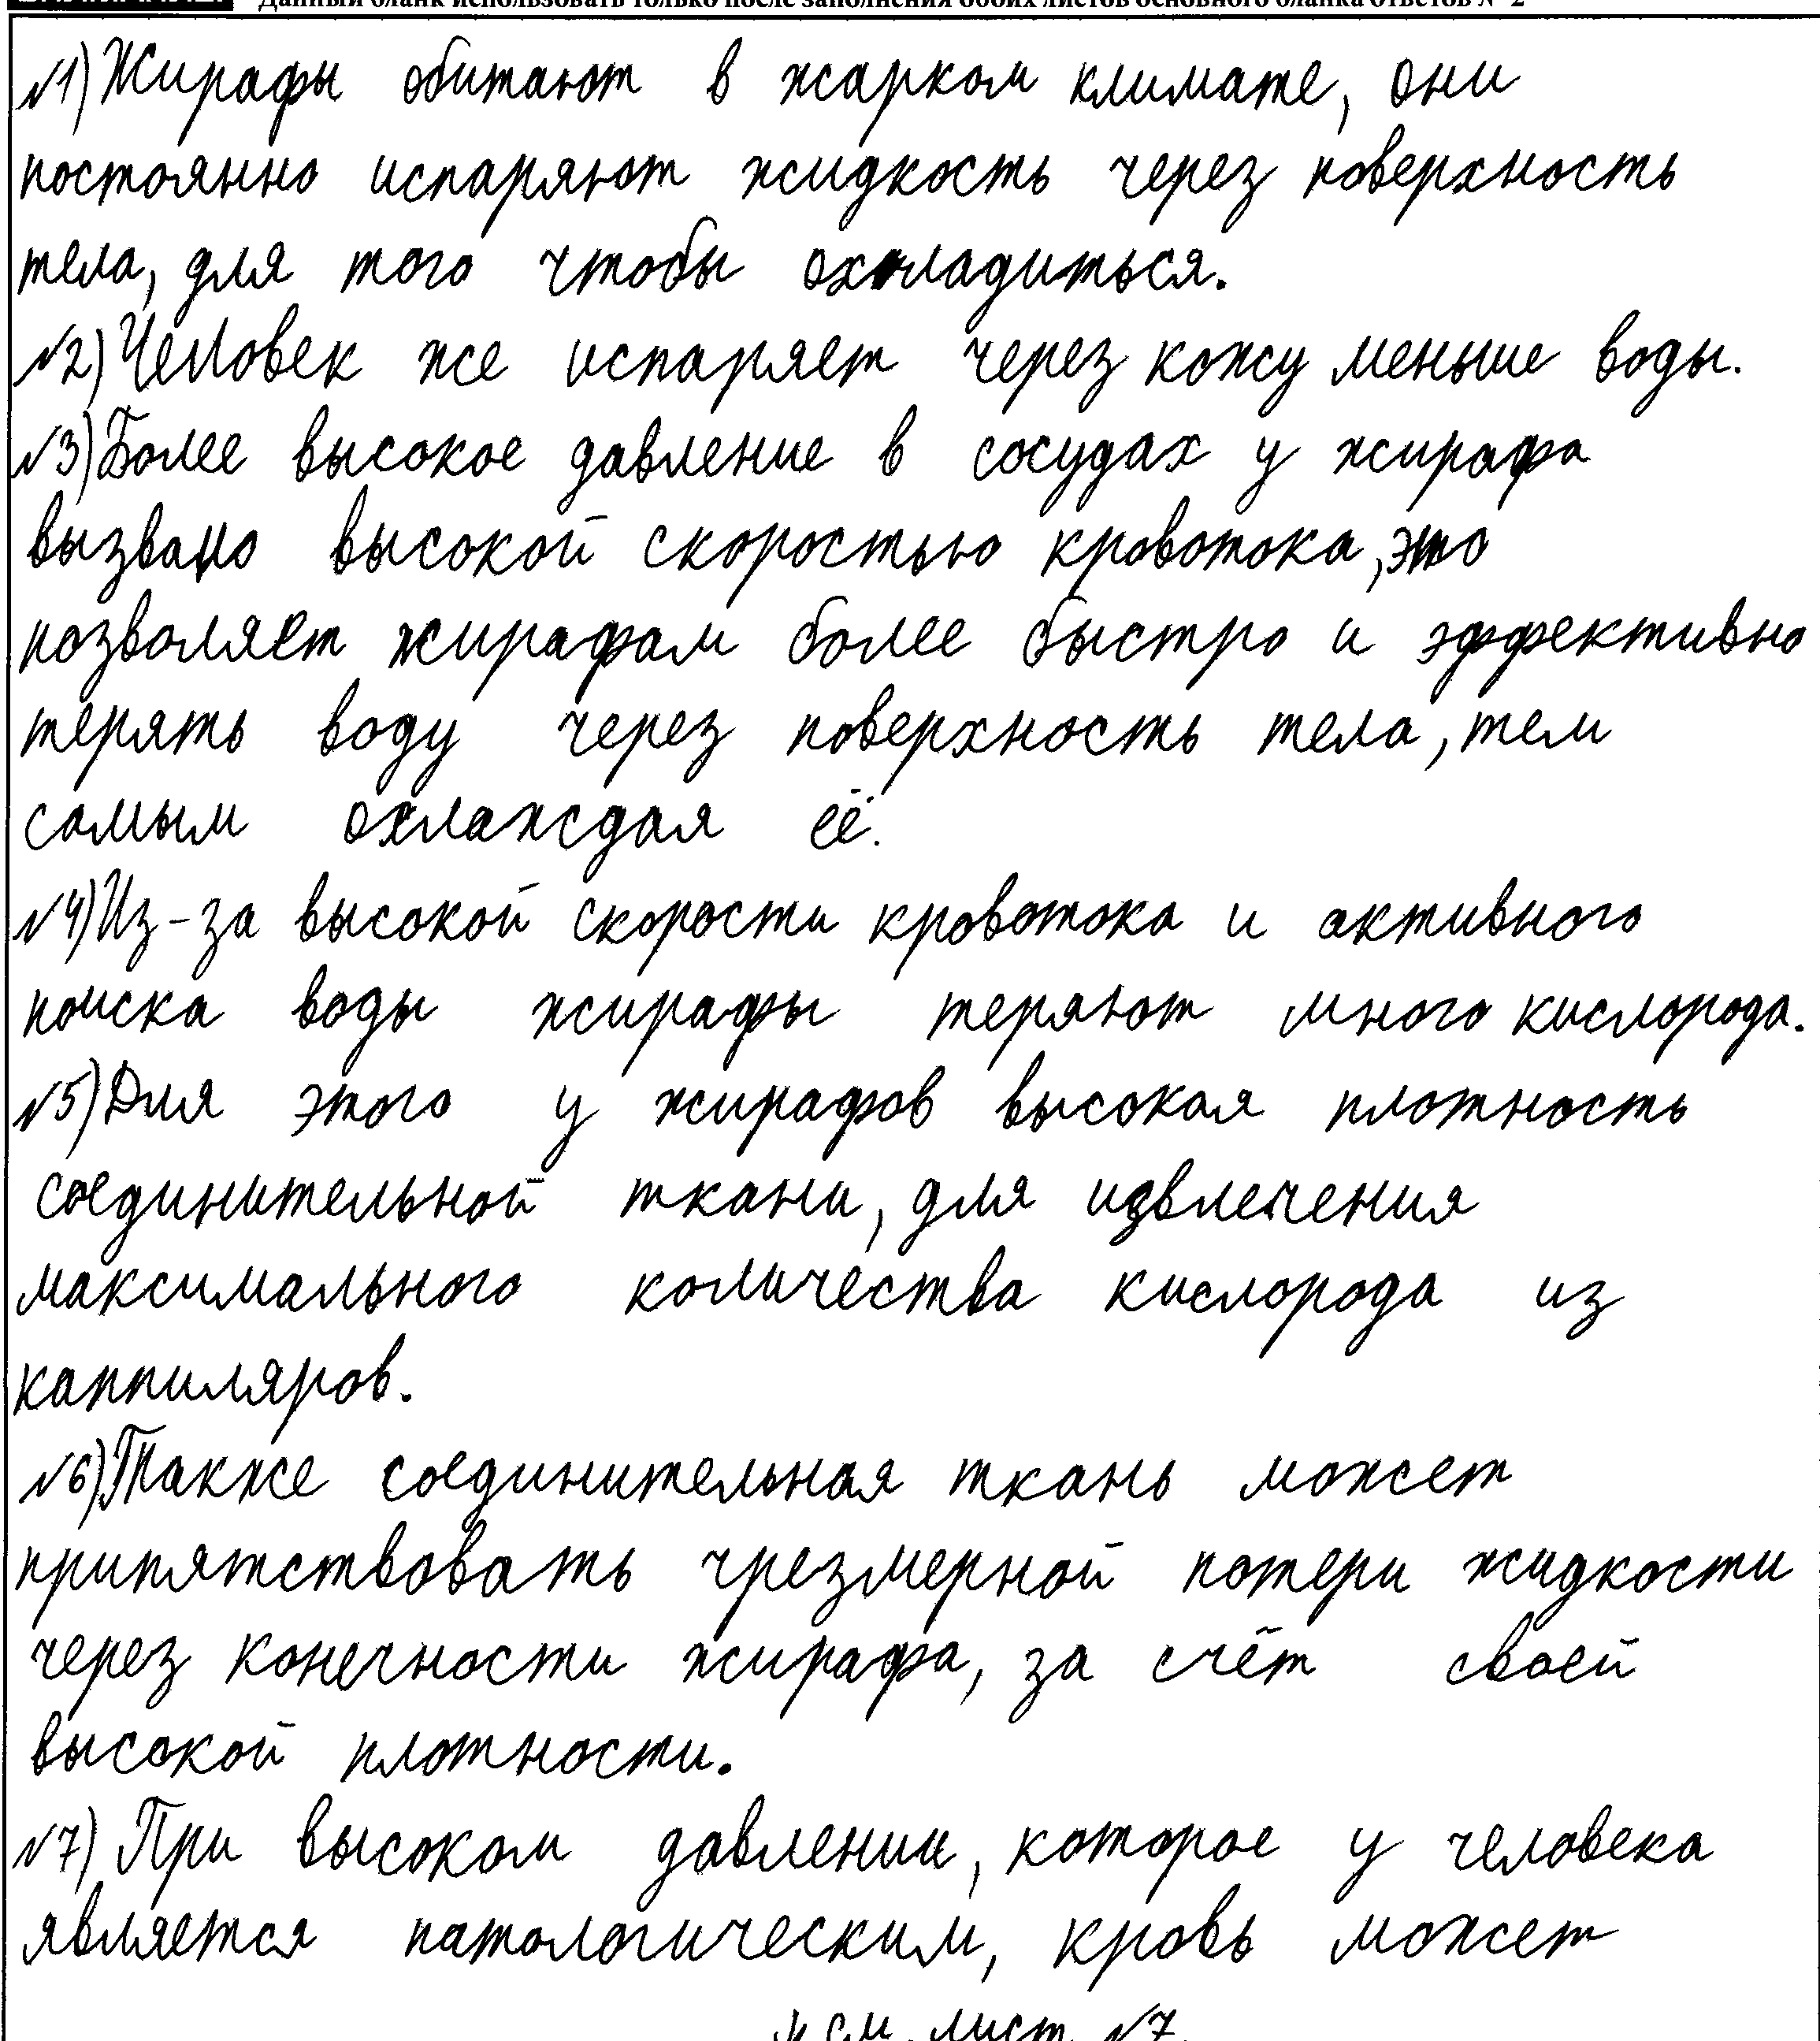 Данный бланк использовать только после заполнения обоих листов основного бланка ответов № 2
№1) Жирафы обитают в жарком климате, они
постоянно испаряют жидкость через поверхность
тела, для того чтобы охладиться.
№2) Человек же испаряет через кожу меньше воды.
№3) Более высокое давление в сосудах у жирафа
вызвано высокой скоростью кровотока, это
позволяет жирафам более быстро и эффективно
терять воду через поверхность тела, тем
самым охлаждая её.
№4) Из-за высокой скорости кровотока и активного
поиска воды жирафы теряют много кислорода.
№5) Для этого у жирафов высокая плотность
соединительной ткани, для извлечения
максимального количества кислорода из
каппиляров.
№6) Также соединительная ткань может
припятствовать чрезмерной потери жидкости
через конечности жирафа, за счёт своей
высокой плотности.
№7) При высоком давлении, которое у человека
является патологическим, кровь может
см. лист №7